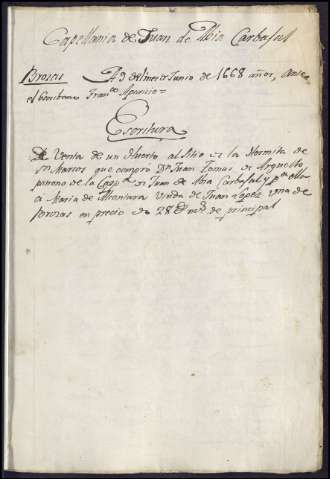 Capellania de Juan de Abia Carbajal
Brozas A 3 del mes de Junio de 1668 años, ante
el escribano Fran.co Aparicio =
Escritura
De Venta de un Huerto al sitio de la Hermita de
Sn Marcos que compró Dn Juan Tomas de Argüello
patrono de la Capn.ia de Juan de Abia Carbajal y pa ello
a Maria de Alcantara Viuda de Juan Lopez vna de
Brozas en precio de 28 mrs de principal